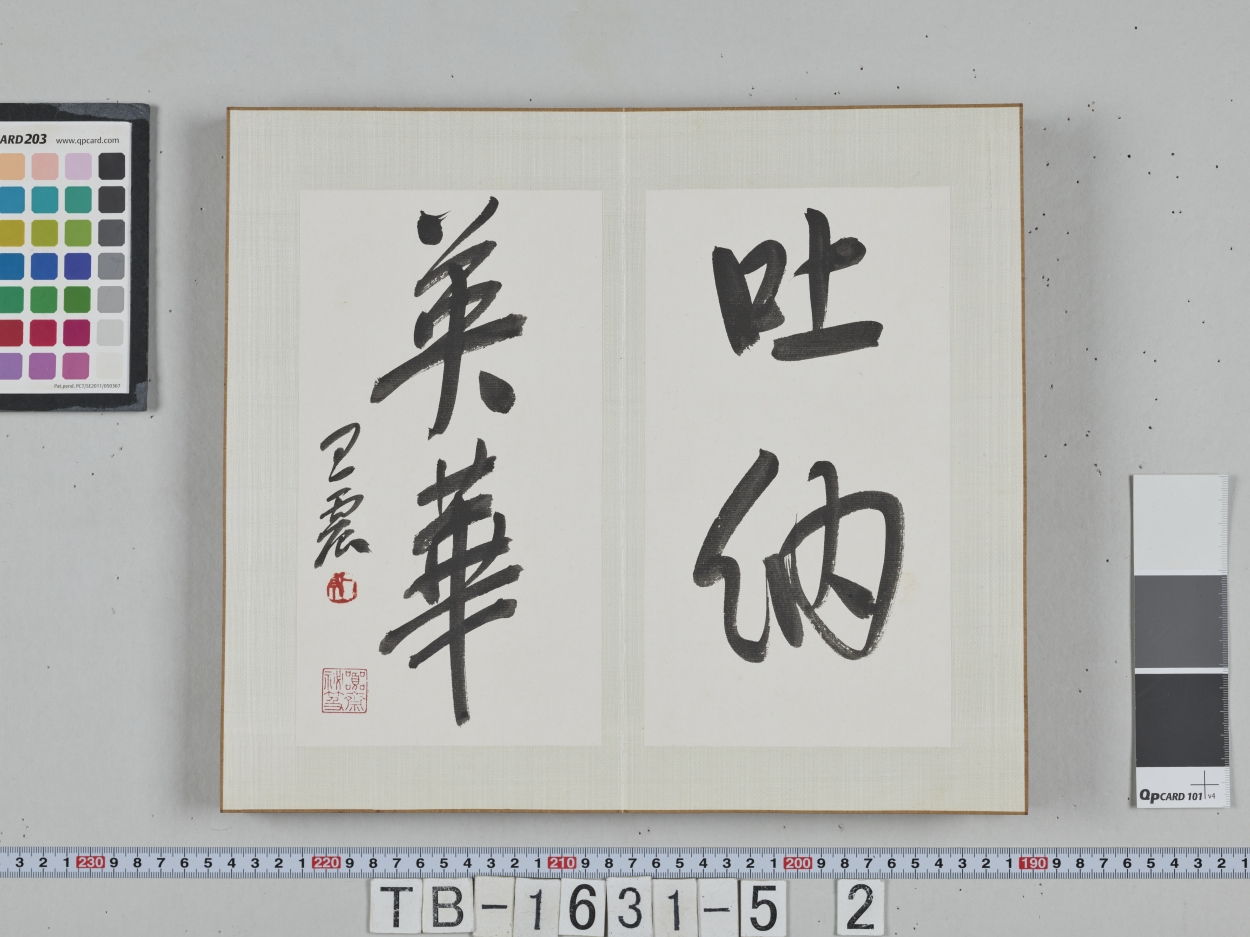 吐納
英華
王震
CARD 203 www.qpcard.com
Pat.pend: PCT/SE2011/050367
QPCARD 101 v4
3 2 1 230 9 8 7 6 5 4 3 2 1 220 9 8 7 6 5 4 3 2 1 210 9 8 7 6 5 4 3 2 1 200 9 8 7 6 5 4 3 2 1 190 9 8 7 6 5 4 3 2 1
TB-1631-5 2